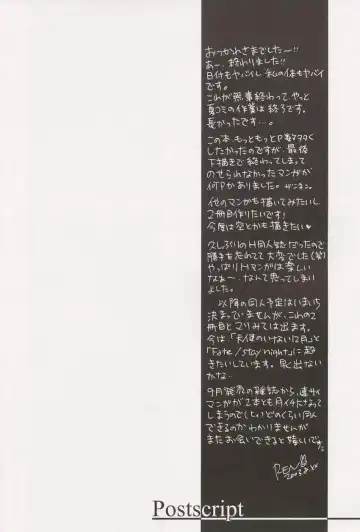 おつかれさまでしたー!!
あー、終わりました!!
日付もヤバイし、私の体もヤバイ
です。
これが無事終わって、やっと
夏コミの作業は終了です。
長かったです…。
この本、もっともっとP数
したかったのですが、最後
下描きで終わってしまって
のせられなかったマンガが
何Pかありました。ザンネン。
他のマンガも描いてみたいし、
2冊目作りたいです!
今度は空とかも描きたい♥
久しぶりのH同人誌だったので
勝手を忘れてて大変でした(笑)
やっぱりHマンガは楽しい
なぁ〜、なんて思ってしまい
ましたよ。
以降の同人予定はいまいち
決まっていませんが、これの2
冊目とマリみては出ます。
今は、「天使のいない12月」と
「Fate/stay night」に
きたいしています。早く出ない
かな…
9月発売の雑誌から、連載
マンガが2本とも月イチになって
しまうので、どのぐらい同人
できるのかわかりませんが
またお会いできると嬉しいです
REN
2003.8.XX
Postscript